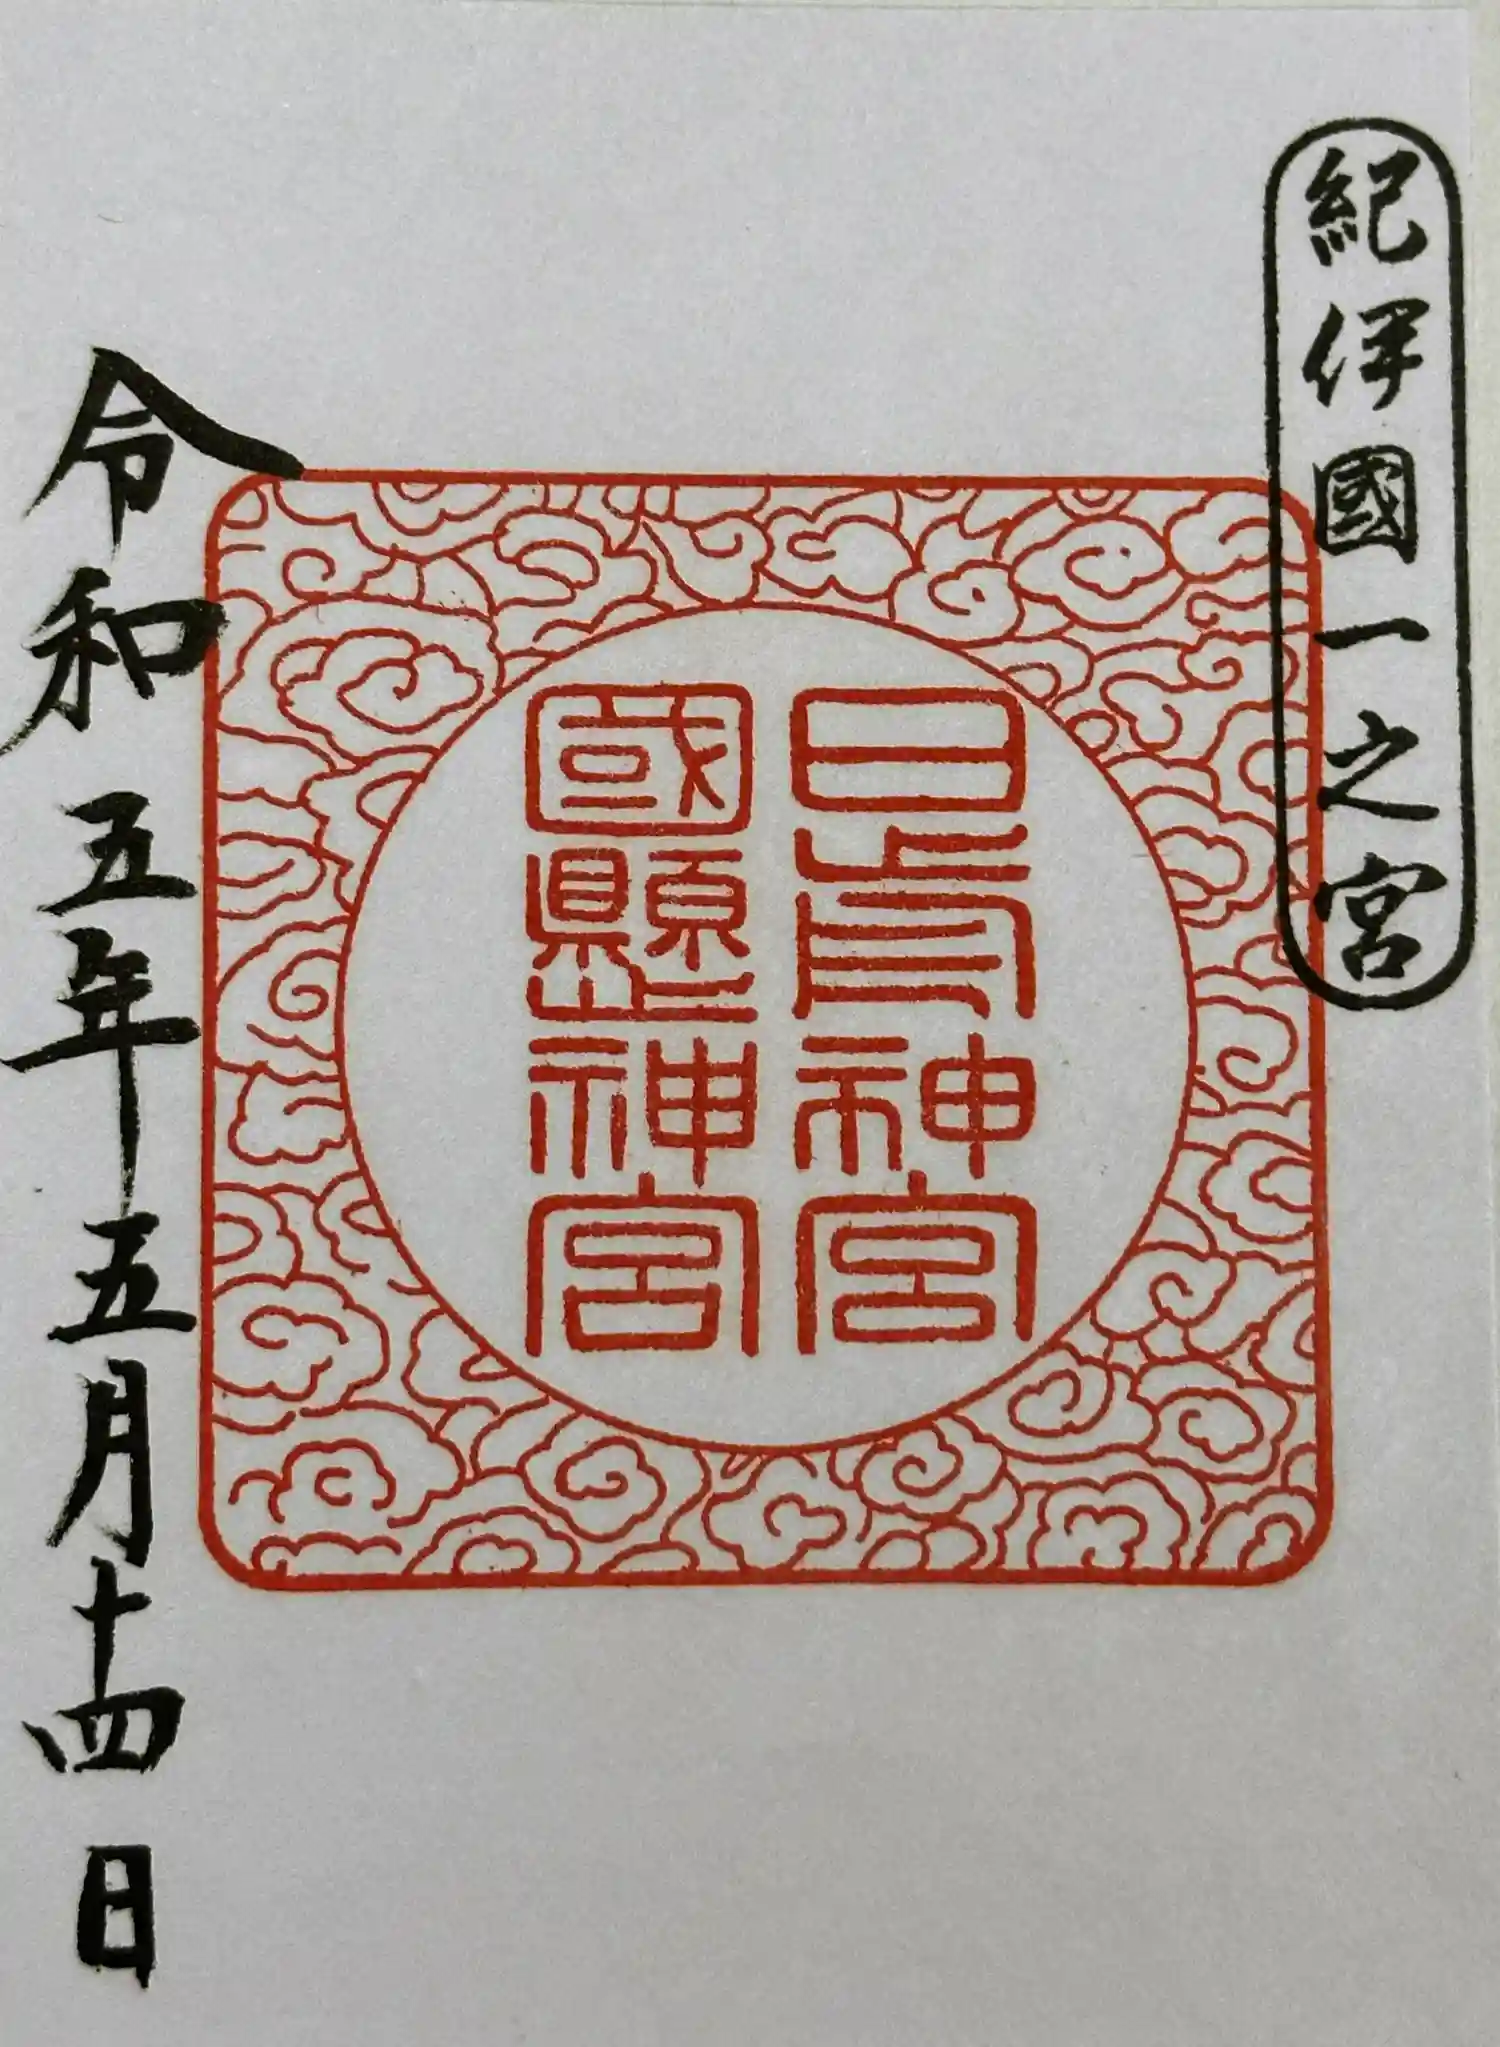 紀伊國一之宮
日前神宮
國懸神宮
令和五年五月十四日